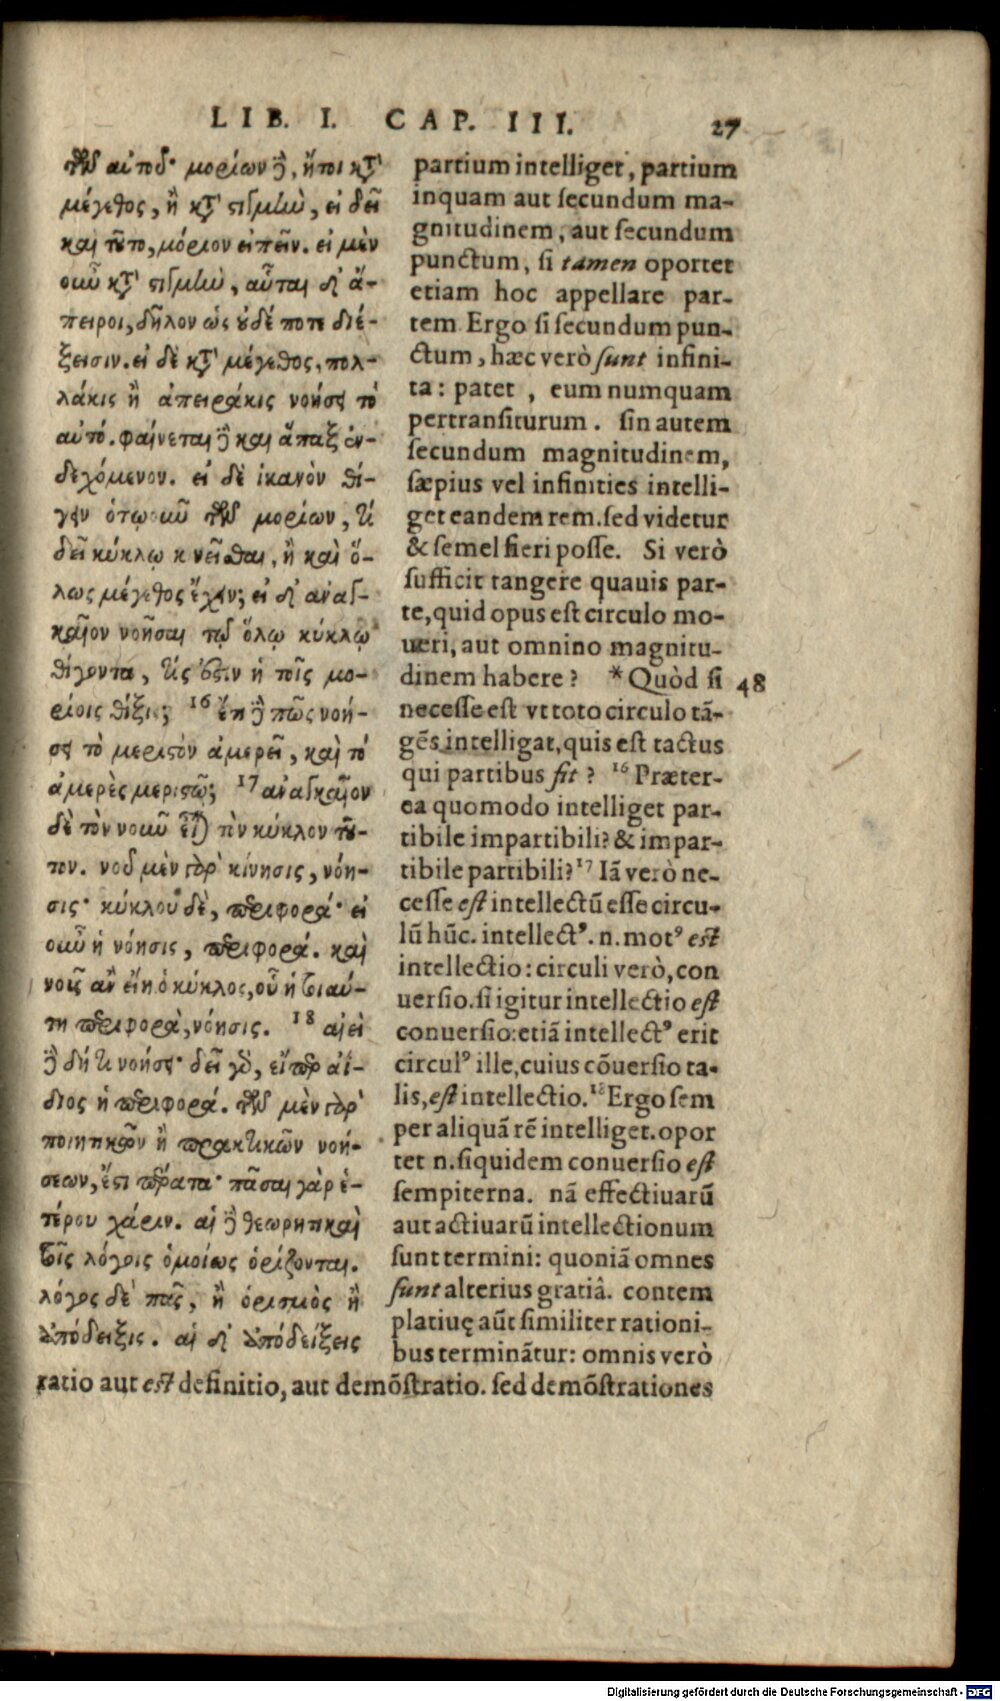 LIB. I. CAP. III. 27
τῶν αὑτοῦ· μορίων δὲ, ἤτοι κατὰ
μέγεθος, ἢ κατὰ στιγμὴν, εἰ δεῖ
καὶ τοῦτο, μόριον εἰπεῖν. εἰ μὲν
οὖν κατὰ στιγμὴν, αὗται δ' ἄ-
πειροι, δῆλον ὡς οὐδέ ποτε διέ-
ξεισιν. εἰ δὲ κατὰ μέγεθος, πολ-
λάκις ἢ ἀπειράκις νοήσει τὸ
αὐτό. φαίνεται δὲ καὶ ἅπαξ ἐν-
δεχόμενον. εἰ δὲ ἱκανὸν θί-
γειν ὁτῳοῦν τῶν μορίων, τί
δεῖ κύκλῳ κινεῖσθαι, ἢ καὶ ὅ-
λως μέγεθος ἔχειν; εἰ δ' ἀναγ-
καῖον νοῆσαι τῷ ὅλῳ κύκλῳ
θίγοντα, τίς ἐστιν ἡ τοῖς μο-
ρίοις θίξις; 16 ἔτι δὲ πῶς νοή-
σει τὸ μεριστὸν ἀμερεῖ, καὶ τὸ
ἀμερὲς μεριστῷ; 17 ἀναγκαῖον
δὲ τὸν νοῦν εἶναι τὸν κύκλον τοῦ-
τον. νοῦ μὲν γὰρ κίνησις, νόη-
σις· κύκλου δὲ, περιφορά· εἰ
οὖν ἡ νόησις, περιφορά. καὶ
νοῦς ἂν εἴη ὁ κύκλος, οὗ ἡ τοιαύ-
τη περιφορὰ, νόησις. 18 ἀεὶ
δὲ δή τι νοήσει· δεῖ γὰρ, εἴπερ ἀΐ-
διος ἡ περιφορά. τῶν μὲν γὰρ
ποιητικῶν ἢ πρακτικῶν νοή-
σεων, ἔστι πέρατα· πᾶσαι γὰρ ἑ-
τέρου χάριν. αἱ δὲ θεωρητικαὶ
τοῖς λόγοις ὁμοίως ὁρίζονται.
λόγος δὲ πᾶς, ἢ ὁρισμὸς ἢ
ἀπόδειξις. αἱ δ' ἀποδείξεις
partium intelliget, partium
inquam aut secundum ma-
gnitudinem, aut secundum
punctum, si tamen oportet
etiam hoc appellare par-
tem Ergo si secundum pun-
ctum, hæc verò sunt infini-
ta: patet, eum numquam
pertransiturum. sin autem
secundum magnitudinem,
sæpius vel infinities intelli-
get eandem rem. sed videtur
& semel fieri posse. Si verò
sufficit tangere quauis par-
te, quid opus est circulo mo-
ueri, aut omnino magnitu-
dinem habere? *Quòd si 48
necesse est vt toto circulo tã-
gẽs intelligat, quis est tactus
qui partibus fit? 16 Præter-
ea quomodo intelliget par-
tibile impartibili? & impar-
tibile partibili? 17 Iã verò ne-
cesse est intellectũ esse circu-
lũ hũc. intellectꝰ. n. motꝰ est
intellectio: circuli verò, con
uersio. si igitur intellectio est
conuersio: etiã intellectꝰ erit
circulꝰ ille, cuius cõuersio ta-
lis, est intellectio. 18 Ergo sem
per aliquã rẽ intelliget. opor
tet n. siquidem conuersio est
sempiterna. nã effectiuarũ
aut actiuarũ intellectionum
sunt termini: quoniã omnes
sunt alterius gratiâ. contem
platiuę aũt similiter rationi-
bus terminãtur: omnis verò
ratio aut est definitio, aut demõstratio. sed demõstrationes
Digitalisierung gefördert durch die Deutsche Forschungsgemeinschaft - DFG